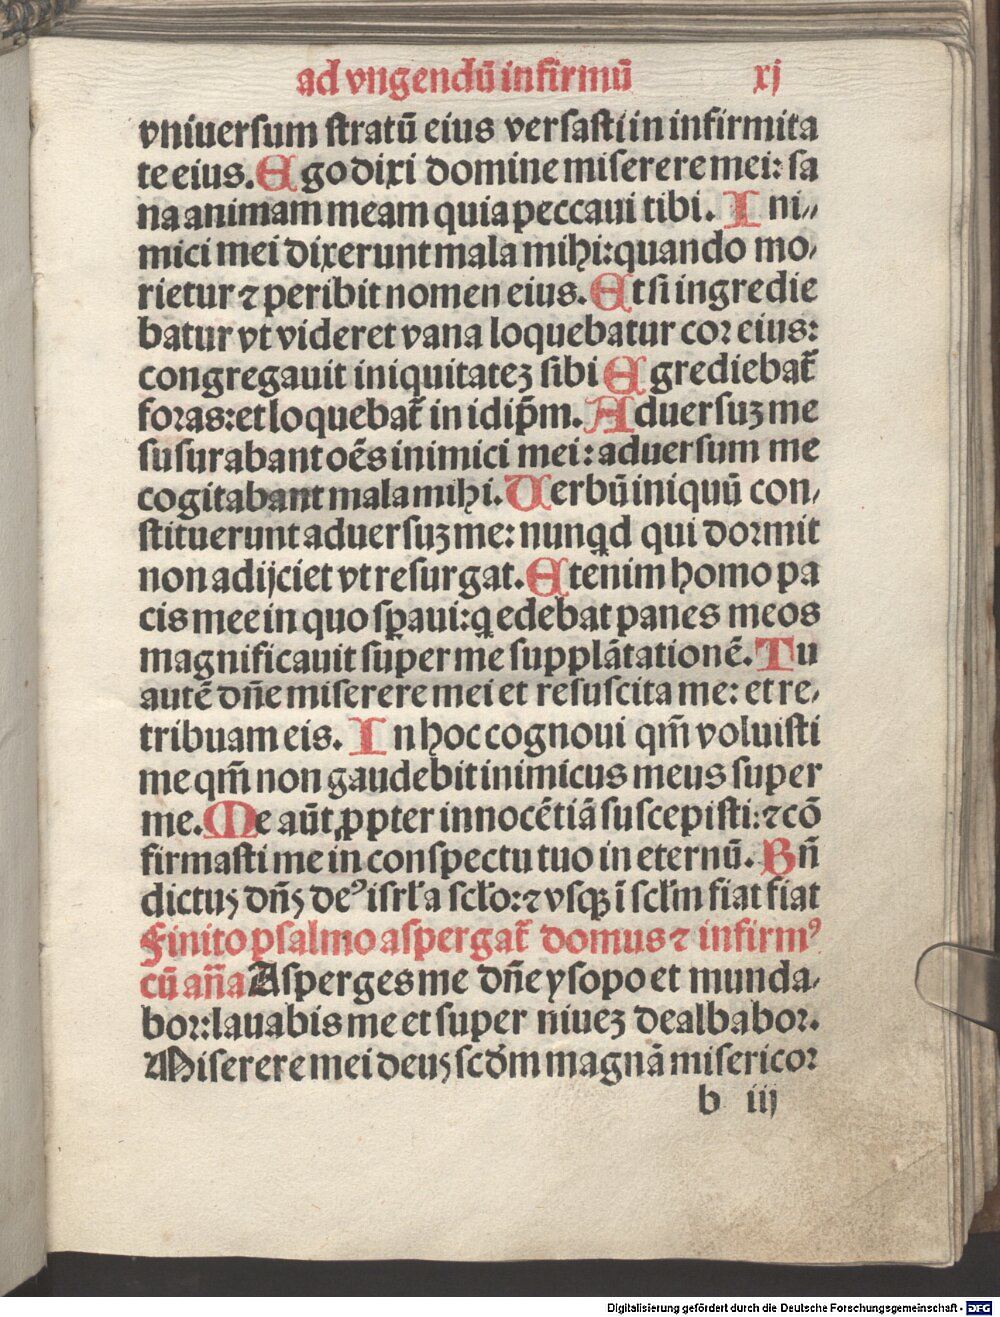 ad vngendū infirmū xj
vniuersum stratū eius versasti in infirmita
te eius. Ego dixi domine miserere mei: sa
na animam meam quia peccaui tibi. Ini⸗
mici mei dixerunt mala mihi: quando mo⸗
rietur ⁊ peribit nomen eius. Et si ingredie
batur vt videret vana loquebatur cor eius:
congregauit iniquitatez sibi Egrediebat᷑
foras: et loquebat᷑ in idip̄m. Aduersuz me
susurabant oēs inimici mei: aduersum me
cogitabant mala mihi. Verbū iniquū con⸗
stituerunt aduersuz me: nunqd qui dormit
non adijciet vt resurgat. Etenim homo pa
cis mee in quo sꝑaui: q edebat panes meos
magnificauit super me supplātationē. Tu
autē dn̄e miserere mei et resuscita me: et re⸗
tribuam eis. In hoc cognoui qm̄ voluisti
me qm̄ non gaudebit inimicus meus super
me. Me aūt ꝓpter innocētiā suscepisti: ⁊ cō
firmasti me in conspectu tuo in eternū. Bn̄
dictus dn̄s deꝰ isrl̄ a scl̄o: ⁊ vsqꝫ ī scl̄m fiat fiat
Finito psalmo aspergat᷑ domus ⁊ infirmꝰ
cū an̄a Asperges me dn̄e ysopo et munda⸗
bor: lauabis me et super niuez dealbabor.
Miserere mei deus scd̄m magnā misericor
b iij
Digitalisierung gefördert durch die Deutsche Forschungsgemeinschaft - DFG